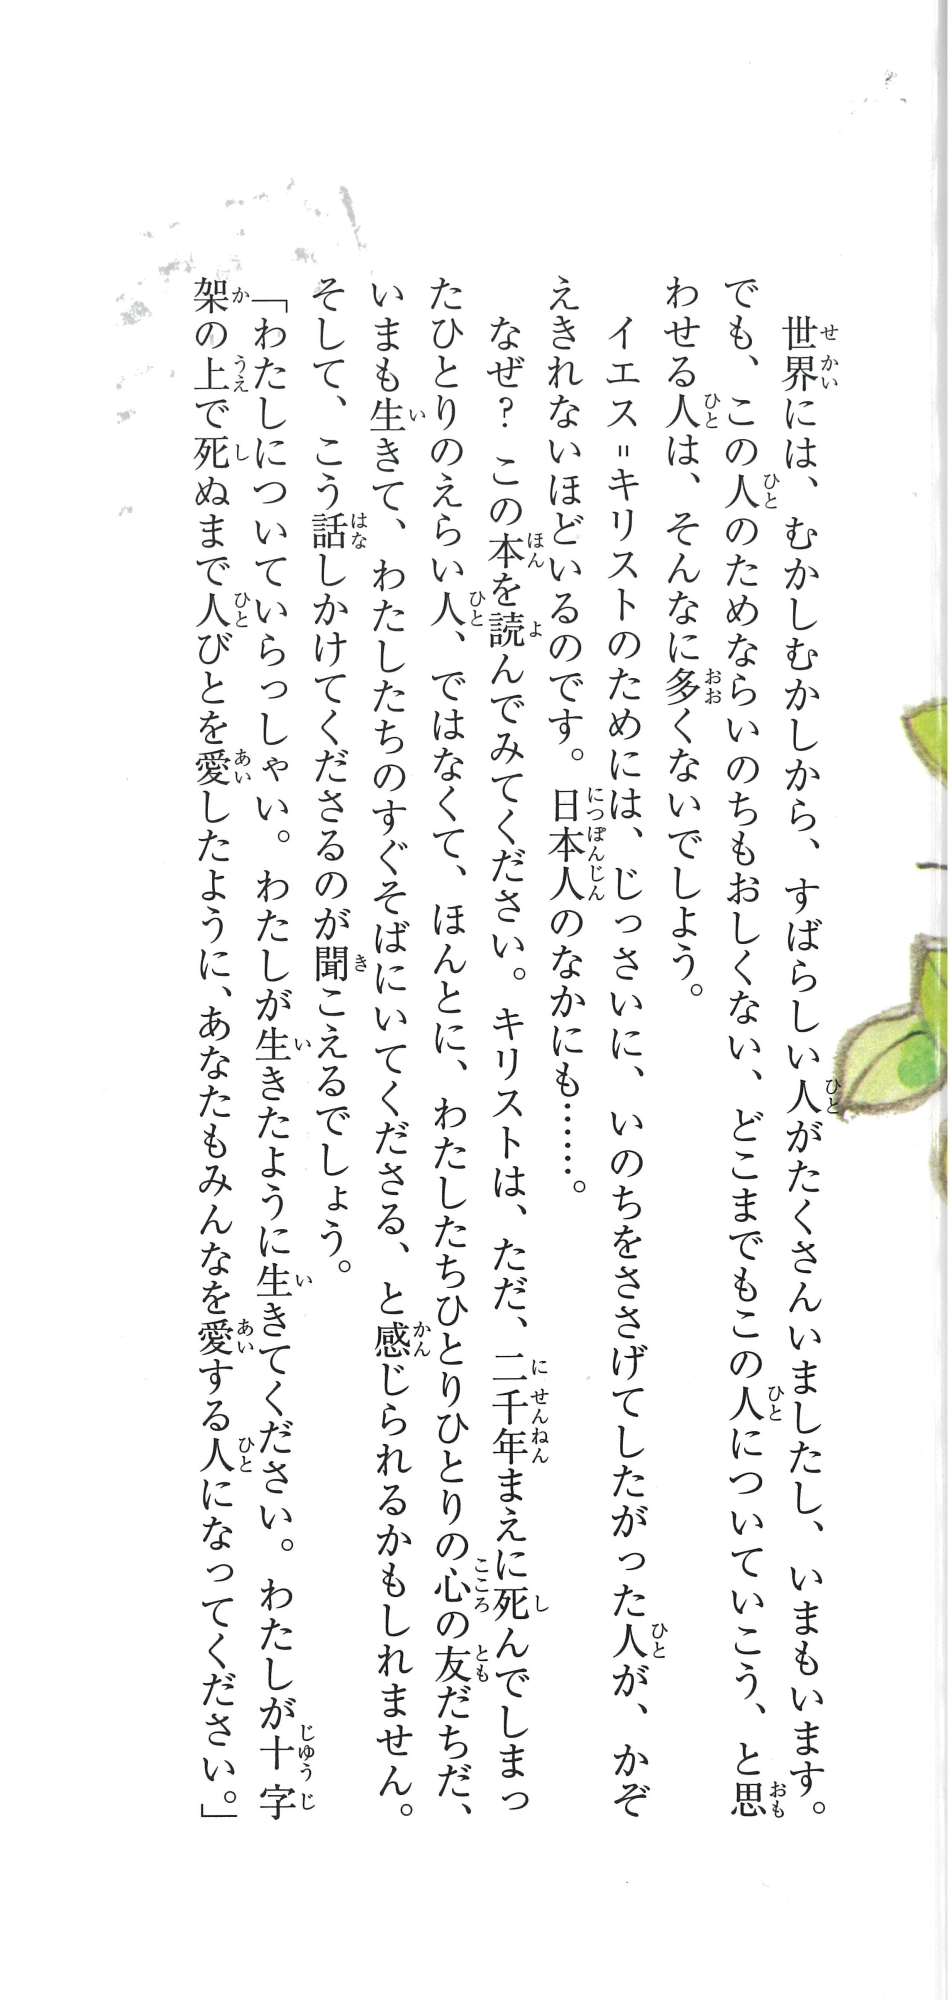 世界には、むかしむかしから、すばらしい人がたくさんいましたし、いまもいます。
でも、この人のためならいのちもおしくない、どこまでもこの人についていこう、と思
わせる人は、そんなに多くないでしよう。
イエス＝キリストのためには、じっさいに、いのちをささげてしたがった人が、かぞ
えきれないほどいるのです。日本人のなかにも……。
なぜ？ この本を読んでみてください。キリストは、ただ、二千年まえに死んでしまっ
たひとりのえらい人、ではなくて、ほんとに、わたしたちひとりひとりの心の友だちだ、
いまも生きて、わたしたちのすぐそばにいてくださる、と感じられるかもしれません。
そして、こう話しかけてくださるのが聞こえるでしょう。
「わたしについていらっしゃい。わたしが生きたように生きてください。わたしが十字
架の上で死ぬまで人びとを愛したように、あなたもみんなを愛する人になってください。」